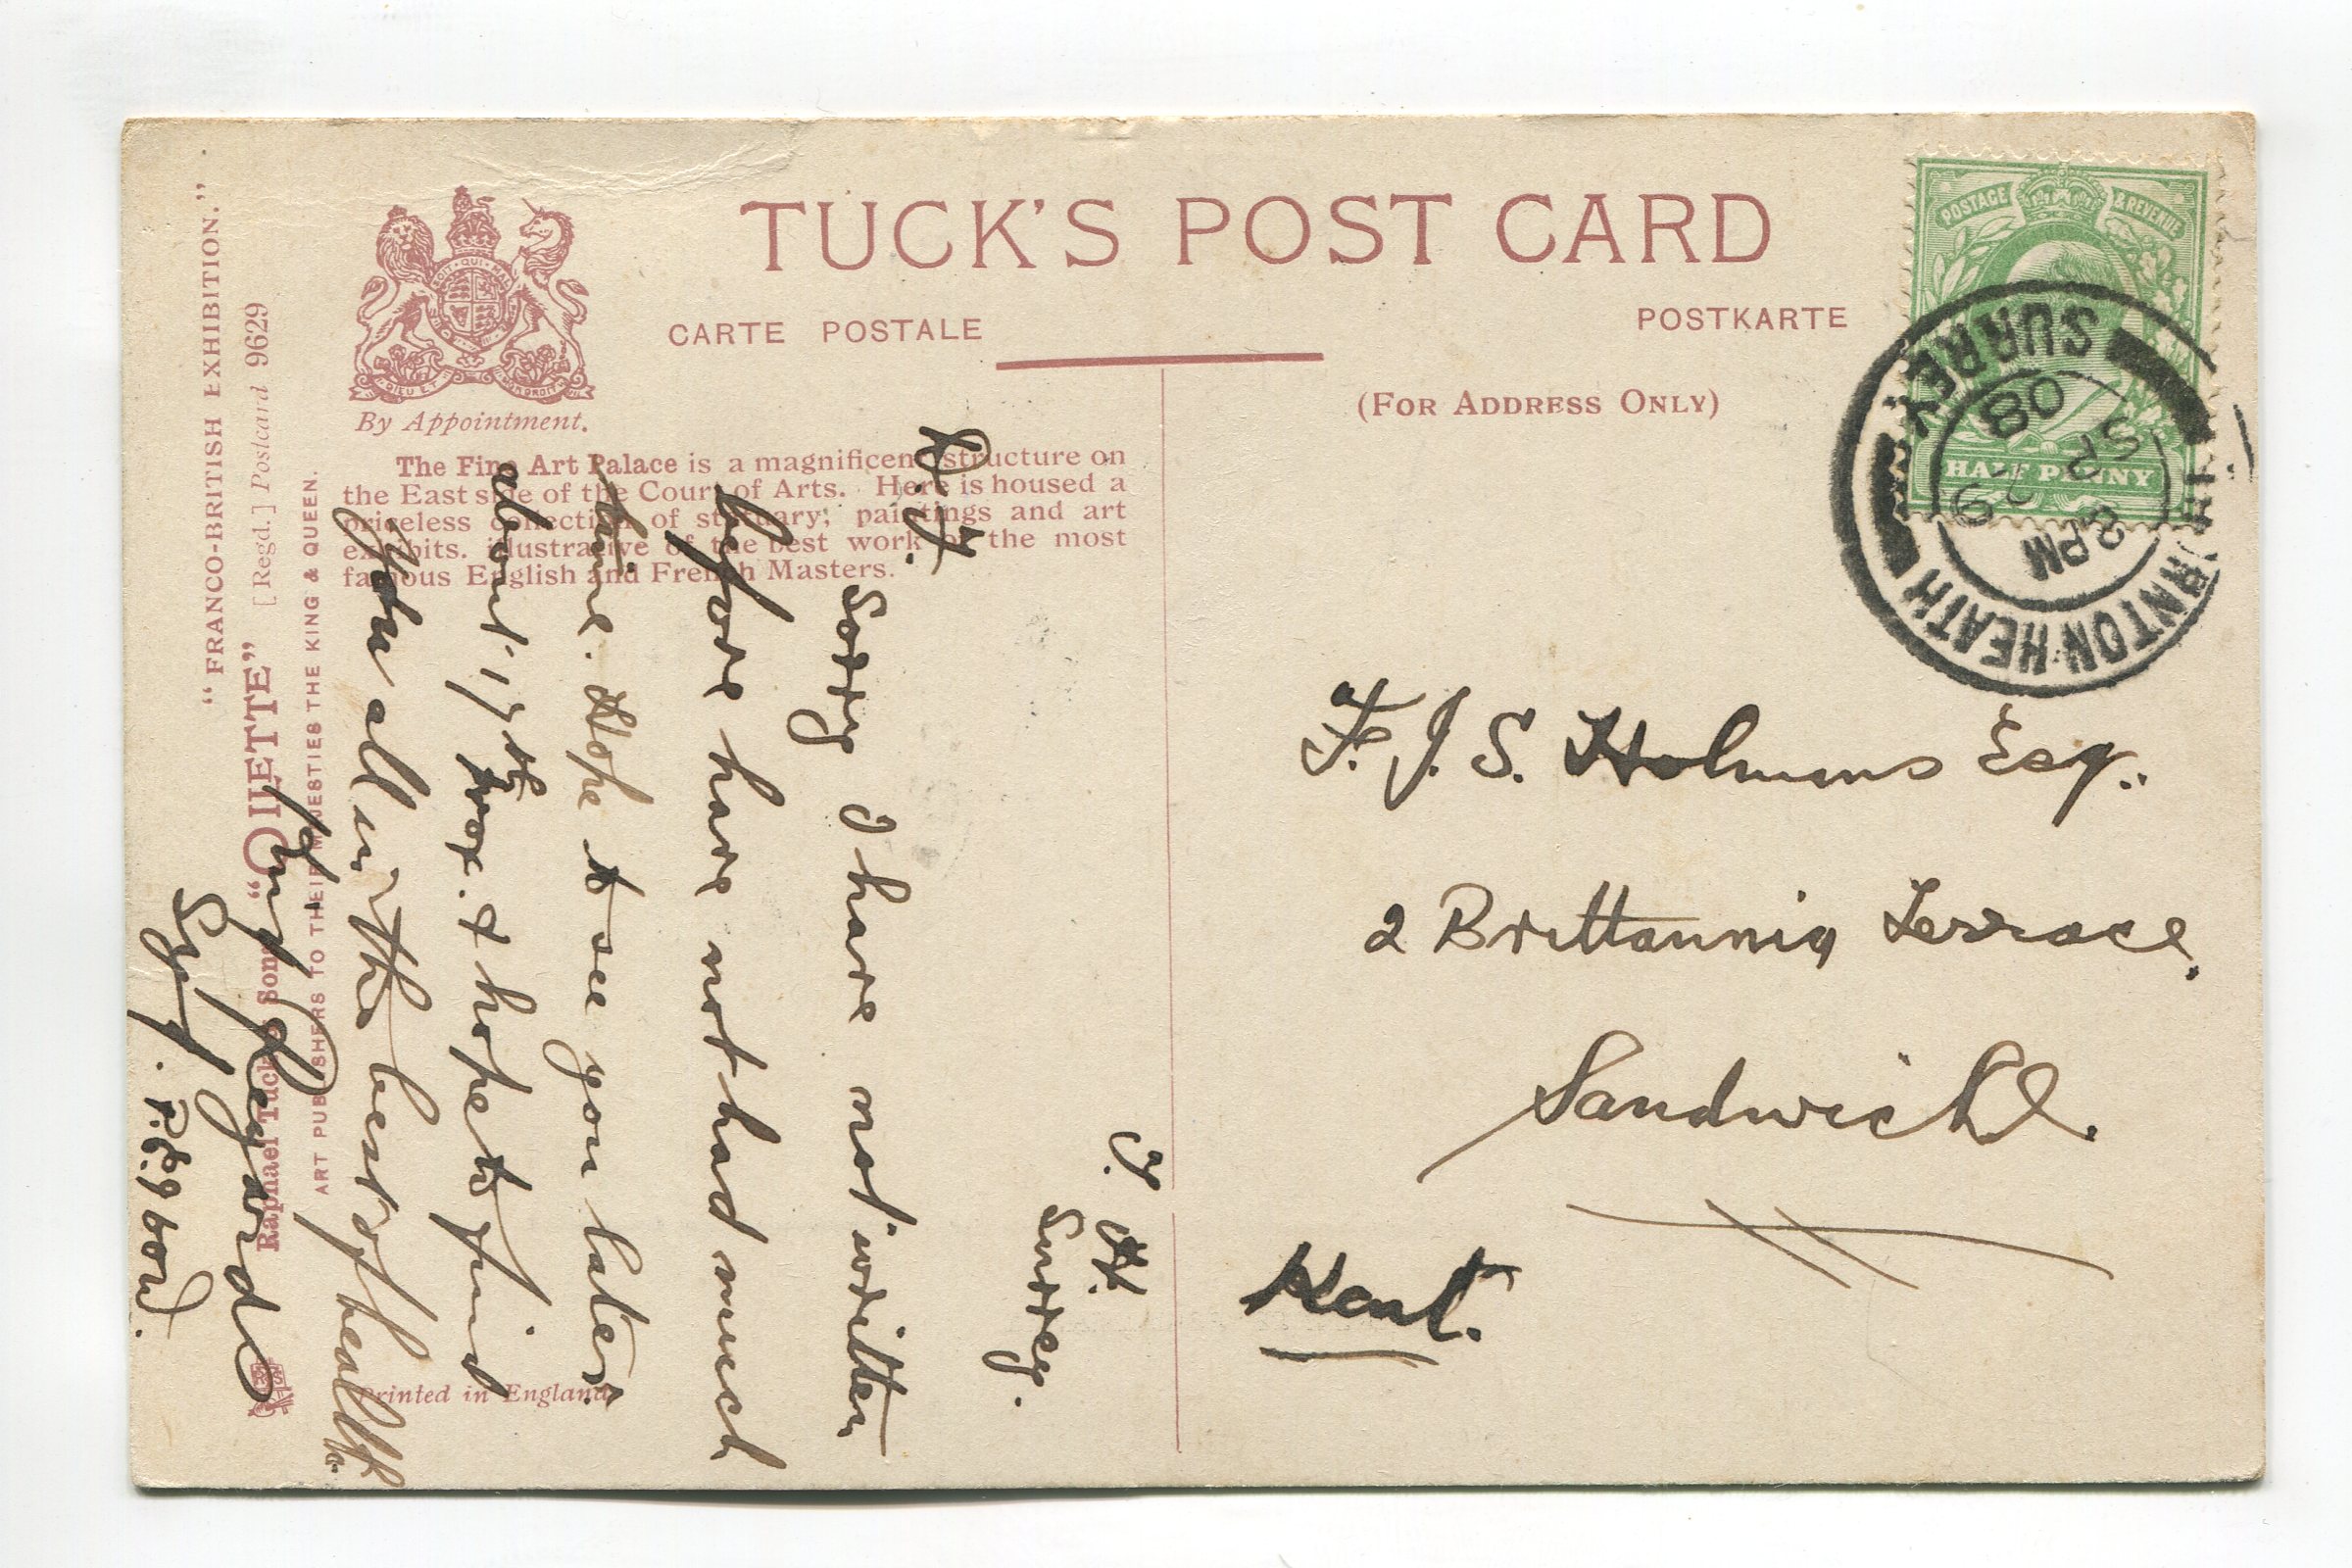 TUCK'S POST CARD
CARTE POSTALE
POSTKARTE
(FOR ADDRESS ONLY)
By Appointment.
The Fine Art Palace is a magnificent structure on
the East side of the Court of Arts. Here is housed a
priceless collection of statuary, paintings and art
exhibits. illustrative of the best work of the most
famous English and French Masters.
"FRANCO-BRITISH EXHIBITION."
Raphael Tuck & Sons "OILETTE" [Regd.] Postcard 9629
ART PUBLISHERS TO THEIR MAJESTIES THE KING & QUEEN.
Printed in England
T. H.
Surrey.
Sorry I have not written
before have not had much
time. Hope to see you later
about 17th prox. & hope to find
you all in the best of health
Kind Regards
POSTAGE & REVENUE
HALF PENNY
THORNTON HEATH
SURREY
8 PM
SP 9
08
F. J. S. Holmans Esq.
2 Brittannia Terrace.
Sandwich.
Kent.